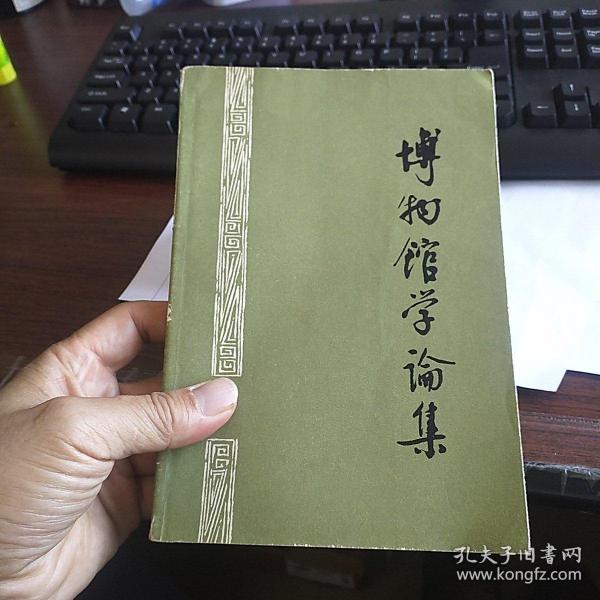 博物館学論集
孔夫子旧書网
www.kongfz.com